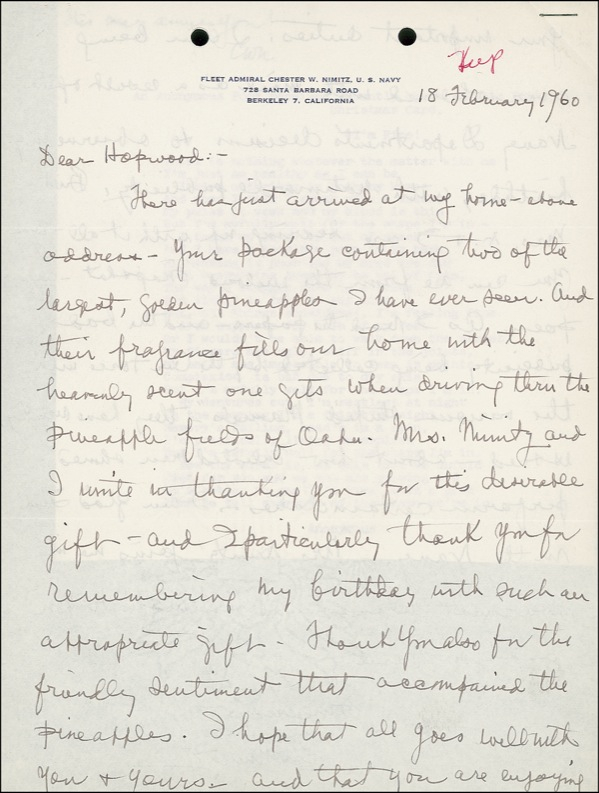 Keep
FLEET ADMIRAL CHESTER W. NIMITZ, U. S. NAVY
728 SANTA BARBARA ROAD
BERKELEY 7, CALIFORNIA
18 February 1960
Dear Hopwood:-
There has just arrived at my home - above
address - your package containing two of the
largest, golden pineapples I have ever seen. And
their fragrance fills our home with the
heavenly scent one gets when driving thru the
pineapple fields of Oahu. Mrs. Nimitz and
I unite in thanking you for this desirable
gift - and I particularly thank you for
remembering my birthday with such an
appropriate gift - Thank you also for the
friendly sentiment that accompained the
pineapples. I hope that all goes well with
you & yours - and that you are enjoying